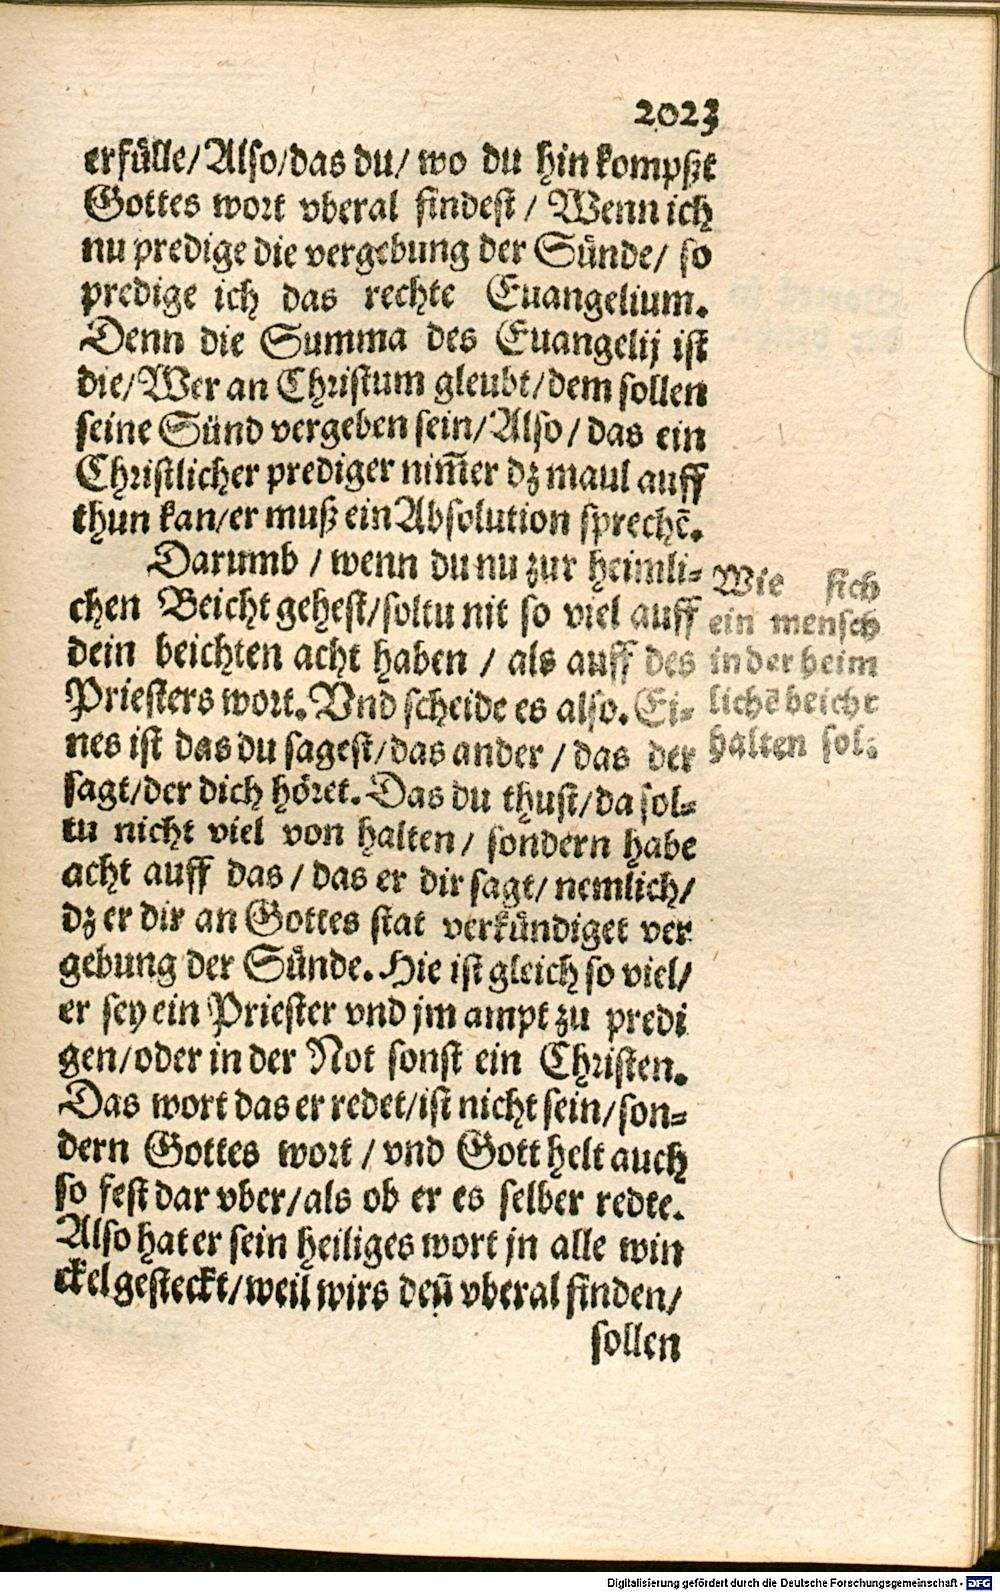 2023
erfülle/Also/das du/ wo du hin kompßt
Gottes wort vberal findest / Wenn ich
nu predige die vergebung der Sünde/ so
predige ich das rechte Euangelium.
Denn die Summa des Euangelij ist
die/Wer an Christum gleubt/dem sollen
seine Sünd vergeben sein/Also/ das ein
Christlicher prediger nim̃er dz maul auff
thun kan/er muß ein Absolution sprechẽ.
Darumb / wenn du nu zur heimli-
chen Beicht gehest/soltu nit so viel auff
dein beichten acht haben / als auff des
Priesters wort. Vnd scheide es also. Ei-
nes ist das du sagest/das ander / das der
sagt/der dich höret. Das du thust/da sol-
tu nicht viel von halten/ sondern habe
acht auff das/ das er dir sagt/ nemlich/
dz er dir an Gottes stat verkündiget ver
gebung der Sünde. Hie ist gleich so viel/
er sey ein Priester vnd jm ampt zu predi
gen/oder in der Not sonst ein Christen.
Das wort das er redet/ist nicht sein/son-
dern Gottes wort / vnd Gott helt auch
so fest dar vber/als ob er es selber redte.
Also hat er sein heiliges wort jn alle win
ckel gesteckt/weil wirs deñ vberal finden/
sollen
Wie sich
ein mensch
in der heim
lichẽ beicht
halten sol.
Digitalisierung gefördert durch die Deutsche Forschungsgemeinschaft - DFG